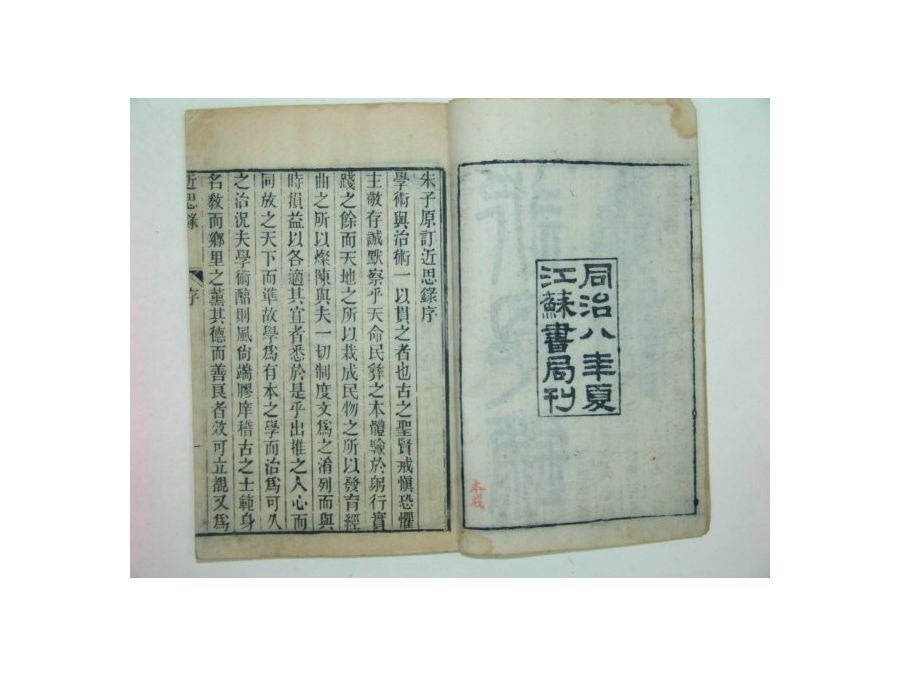 同治八年夏
江蘇書局刊
本棧
朱子原訂近思錄序
學術與治術一以貫之者也古之聖賢戒愼恐懼
主敬存誠默察乎天命民彝之本體驗於躬行實
踐之餘而天地之所以栽成民物之所以發育經
曲之所以燦陳與夫一切制度文爲之淆列而與
時損益以各適其宜者悉於是乎出推之人心而
同放之天下而準故學爲有本之學而治爲可久
之治況夫學術醇則風尙端膠庠稽古之士範身
名敎而鄉里之薰其德而善良者效可立覩又爲
近思錄
序